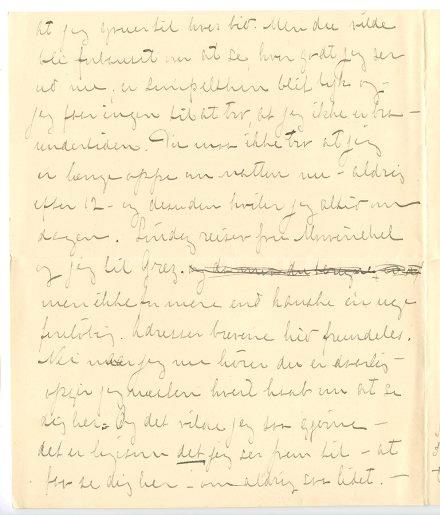 at jeg gruer til hver bid. Men du vilde
bli forbauset om at se, hvor godt jeg ser
ud nu, er simpelthen blit tyk og
jeg faar ingen til at tro at jeg ikke er bra
undertiden. Du maa ikke tro at jeg
er længe oppe om natten nu – aldrig
efter 12 – og desuden hviler jeg altid om
dagen. Lindez reiser fra
og jeg til Grez.
men ikke for mere end kanske en uge
foreløbig. Adresser brevene hid fremdeles.
Nei naar jeg nu hører du er daarlig –
opgir jeg næsten hvert haab om at se
dig her. Og det vilde jeg saa gjerne –
det er ligesom det jeg ser frem til – at
faa se dig her – om aldrig saa lidet. –